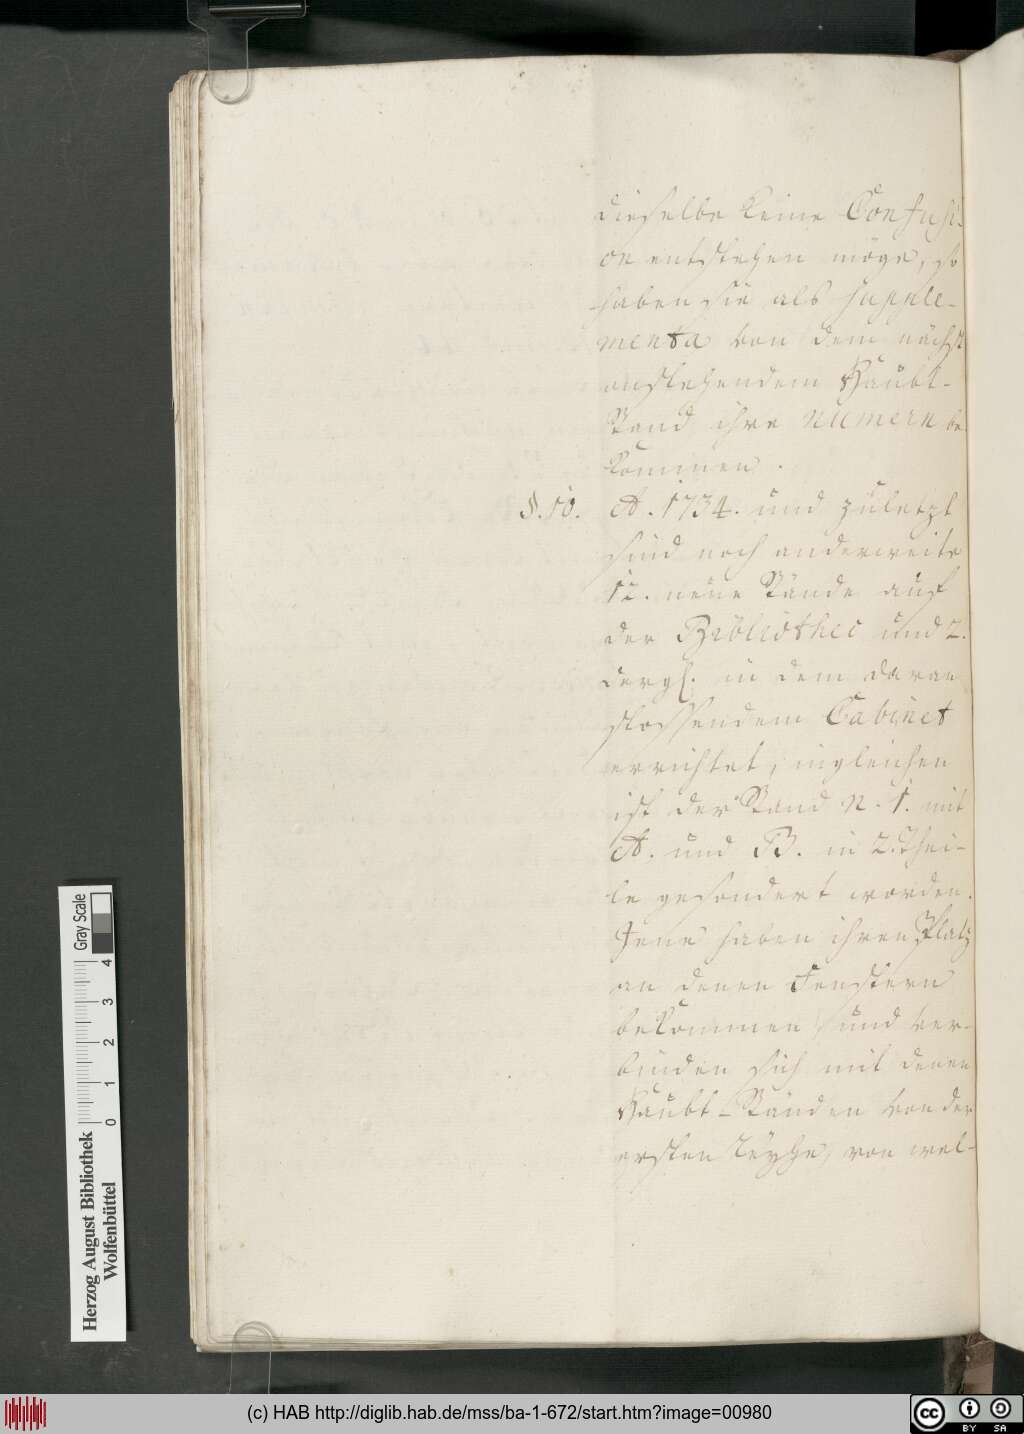 dieselbe keine Confusi-
on entstehen möge, so
haben sie als Supple-
menta von dem nächst
anstehendem Haubt-
Stand ihre Numern be
kommen.
§. 10. A. 1734. und zuletzt
sind noch anderweite
12. neue Stände auf
der Bibliothec und 2.
dergl. in dem daran
stossendem Cabinet
errichtet, ingleichen
ist der Stand N. 1. mit
A. und B. in 2. Thei-
le gesondert worden.
Jene haben ihren Platz
an denen Fenstern
bekommen und ver-
binden sich mit denen
Haubt-Ständen von der
ersten Reyhe, von wel-
Gray Scale
4
3
2
1
0
Herzog August Bibliothek
Wolfenbüttel
(c) HAB http://diglib.hab.de/mss/ba-1-672/start.htm?image=00980
cc BY SA